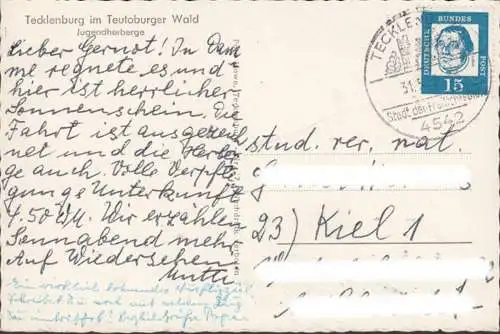 Tecklenburg im Teutoburger Wald
Jugendherberge
Lieber Gernot! In Dam
me regnete es und
hier ist herrlicher
Sonnenschein. Die
Fahrt ist ausgezeich
net und die Herber
ge auch. Volle Verpfle
gung Unterkunft
4.50 DM. Wir erzählen
Sonnabend mehr
Auf Wiedersehen
Mutti
TECKLE
31.
Stadt der
4542
DEUTSCHE
BUNDES
POST
15
stud. rer. nat.
23) Kiel 1
Ein wirklich lohnendes Ausflugsziel